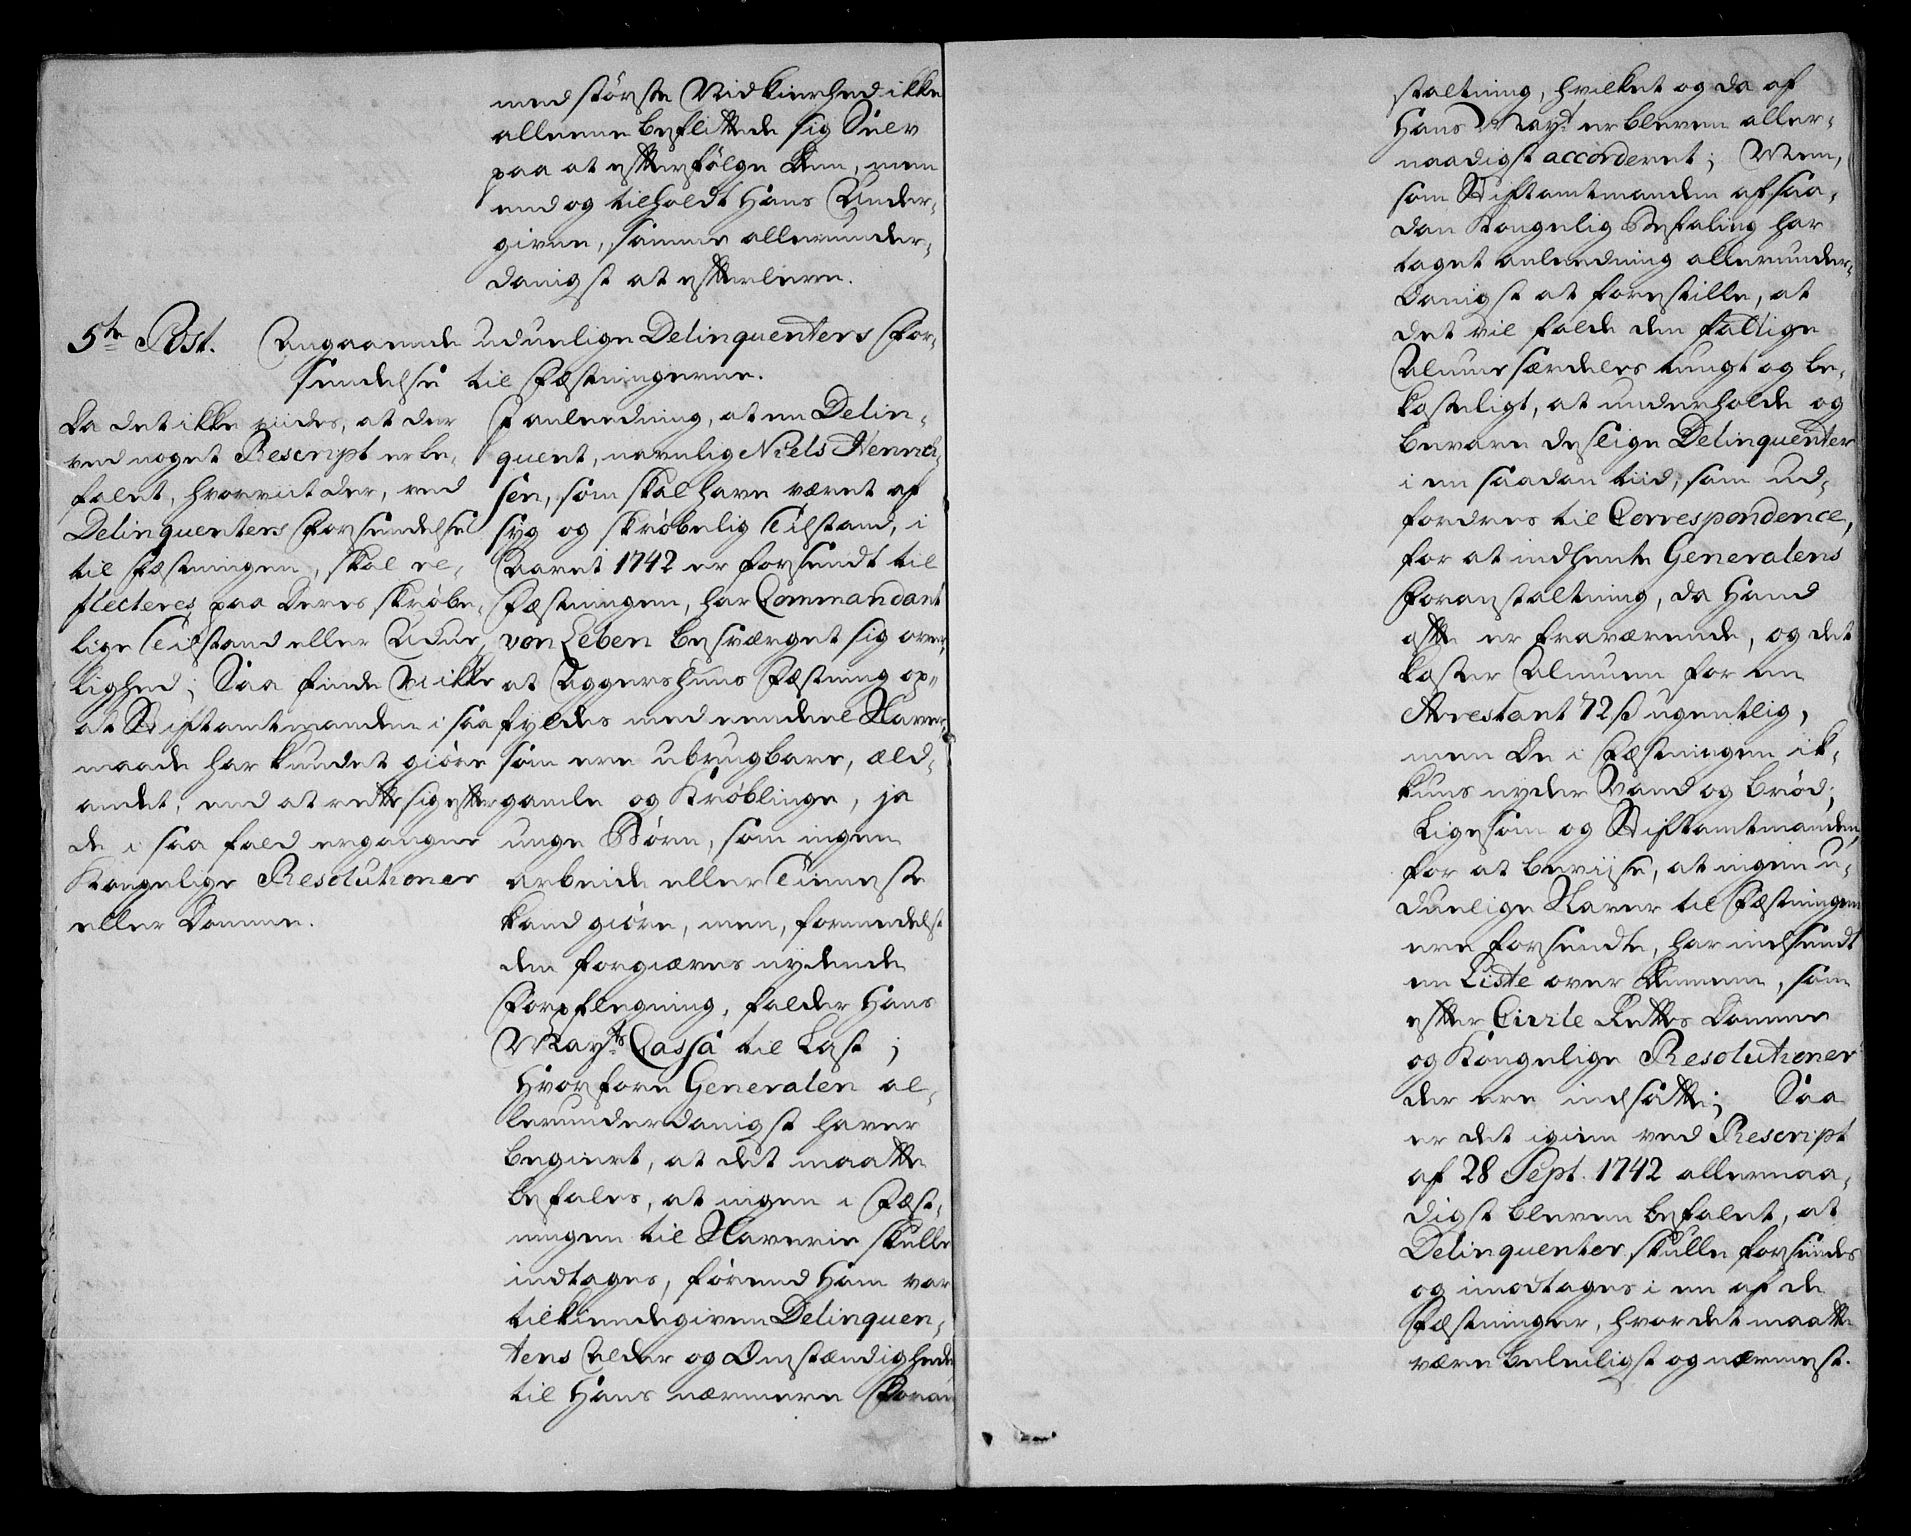 med störste Nidkierhed ikke
alleene beflittede sig Selv
paa at effterfølge dem, men
end og tilholdt Hans Under-
givne, samme allerunder-
danigst at effterleve.
5te Post. Angaaende uduelige Delinquenters For-
sendelse til Fæstningerne.
Da det ikke viides, at der
ved noget Rescript er be-
falet, hvorviit der, ved
Delinquenters Forsendelse
til Fæstningen, skal re-
flecteres paa deres skrøbe-
lige Tilstand eller Udue-
lighed; Saa finde Vi ikke
at Stiftamtmanden i saa
maade har kundet giøre
andet, end at rette sig effter
de i saa fald ergangne
Kongelige Resolutioner
eller Domme.
I anleedning, at en Delin-
quent, navnlig Niels Henrich-
sen, som skal have været af
syg og skrøbelig Tilstand, i
Aaret 1742 er forsendt til
Fæstningen, har Commandant
von Leben besværget sig over,
at Aggershuus Fæstning op-
fyldes med eendeel Slaver,
som ere ubrugbare, æld-
gamle og Krøblinge, ja
unge Børn, som ingen
arbeide eller Tieneste
kand giøre, men, formedelst
den forgiæves nydende
Forpflegning, falder Hans
Mayts Cassa til Last;
Hvorfore Generalen al-
lerunderdanigst haver
begiert, at det maatte
befales, at ingen i Fæst-
ningen til Slaverie skulle
indtages, førend Ham var
tilkiendegiven Delinquen-
tens Alder og Omstændigheder
til Hans nærmere Foran-
staltning, hvilket og da af
Hans Mayt er bleven aller-
naadigst accorderet; Men,
som Stiftamtmanden af saa-
dan Kongelig Befaling har
taget anleedning allerunder-
danigst at forestille, at
det vil falde den fattige
Almue særdeles tungt og be-
kosteligt, at underholde og
bevare deslige Delinquenter
i en saadan tiid, som ud-
fordres til Correspondence,
for at indhente Generalens
Foranstaltning, da Hand
offte er fraværende, og det
koster Almuen for en
Arrestant 72 ß ugentlig,
men De i Fæstningen ik-
kuns nyder Vand og Brød;
Ligesom og Stiftamtmanden,
for at beviise, at ingen u-
duelige Slaver til Fæstningen
ere forsendte, har indsendt
en Liste over dennem, som
effter Civile Rettes Domme
og Kongelige Resolutioner
der ere indsatte; Saa
er det igien ved Rescript
af 28 Sept. 1742 allernaa-
digst bleven befalet, at
Delinquenter skulle forsendes
og imodtages i en af de
Fæstninger, hvor det maatte
være beleiligst og nærmest.